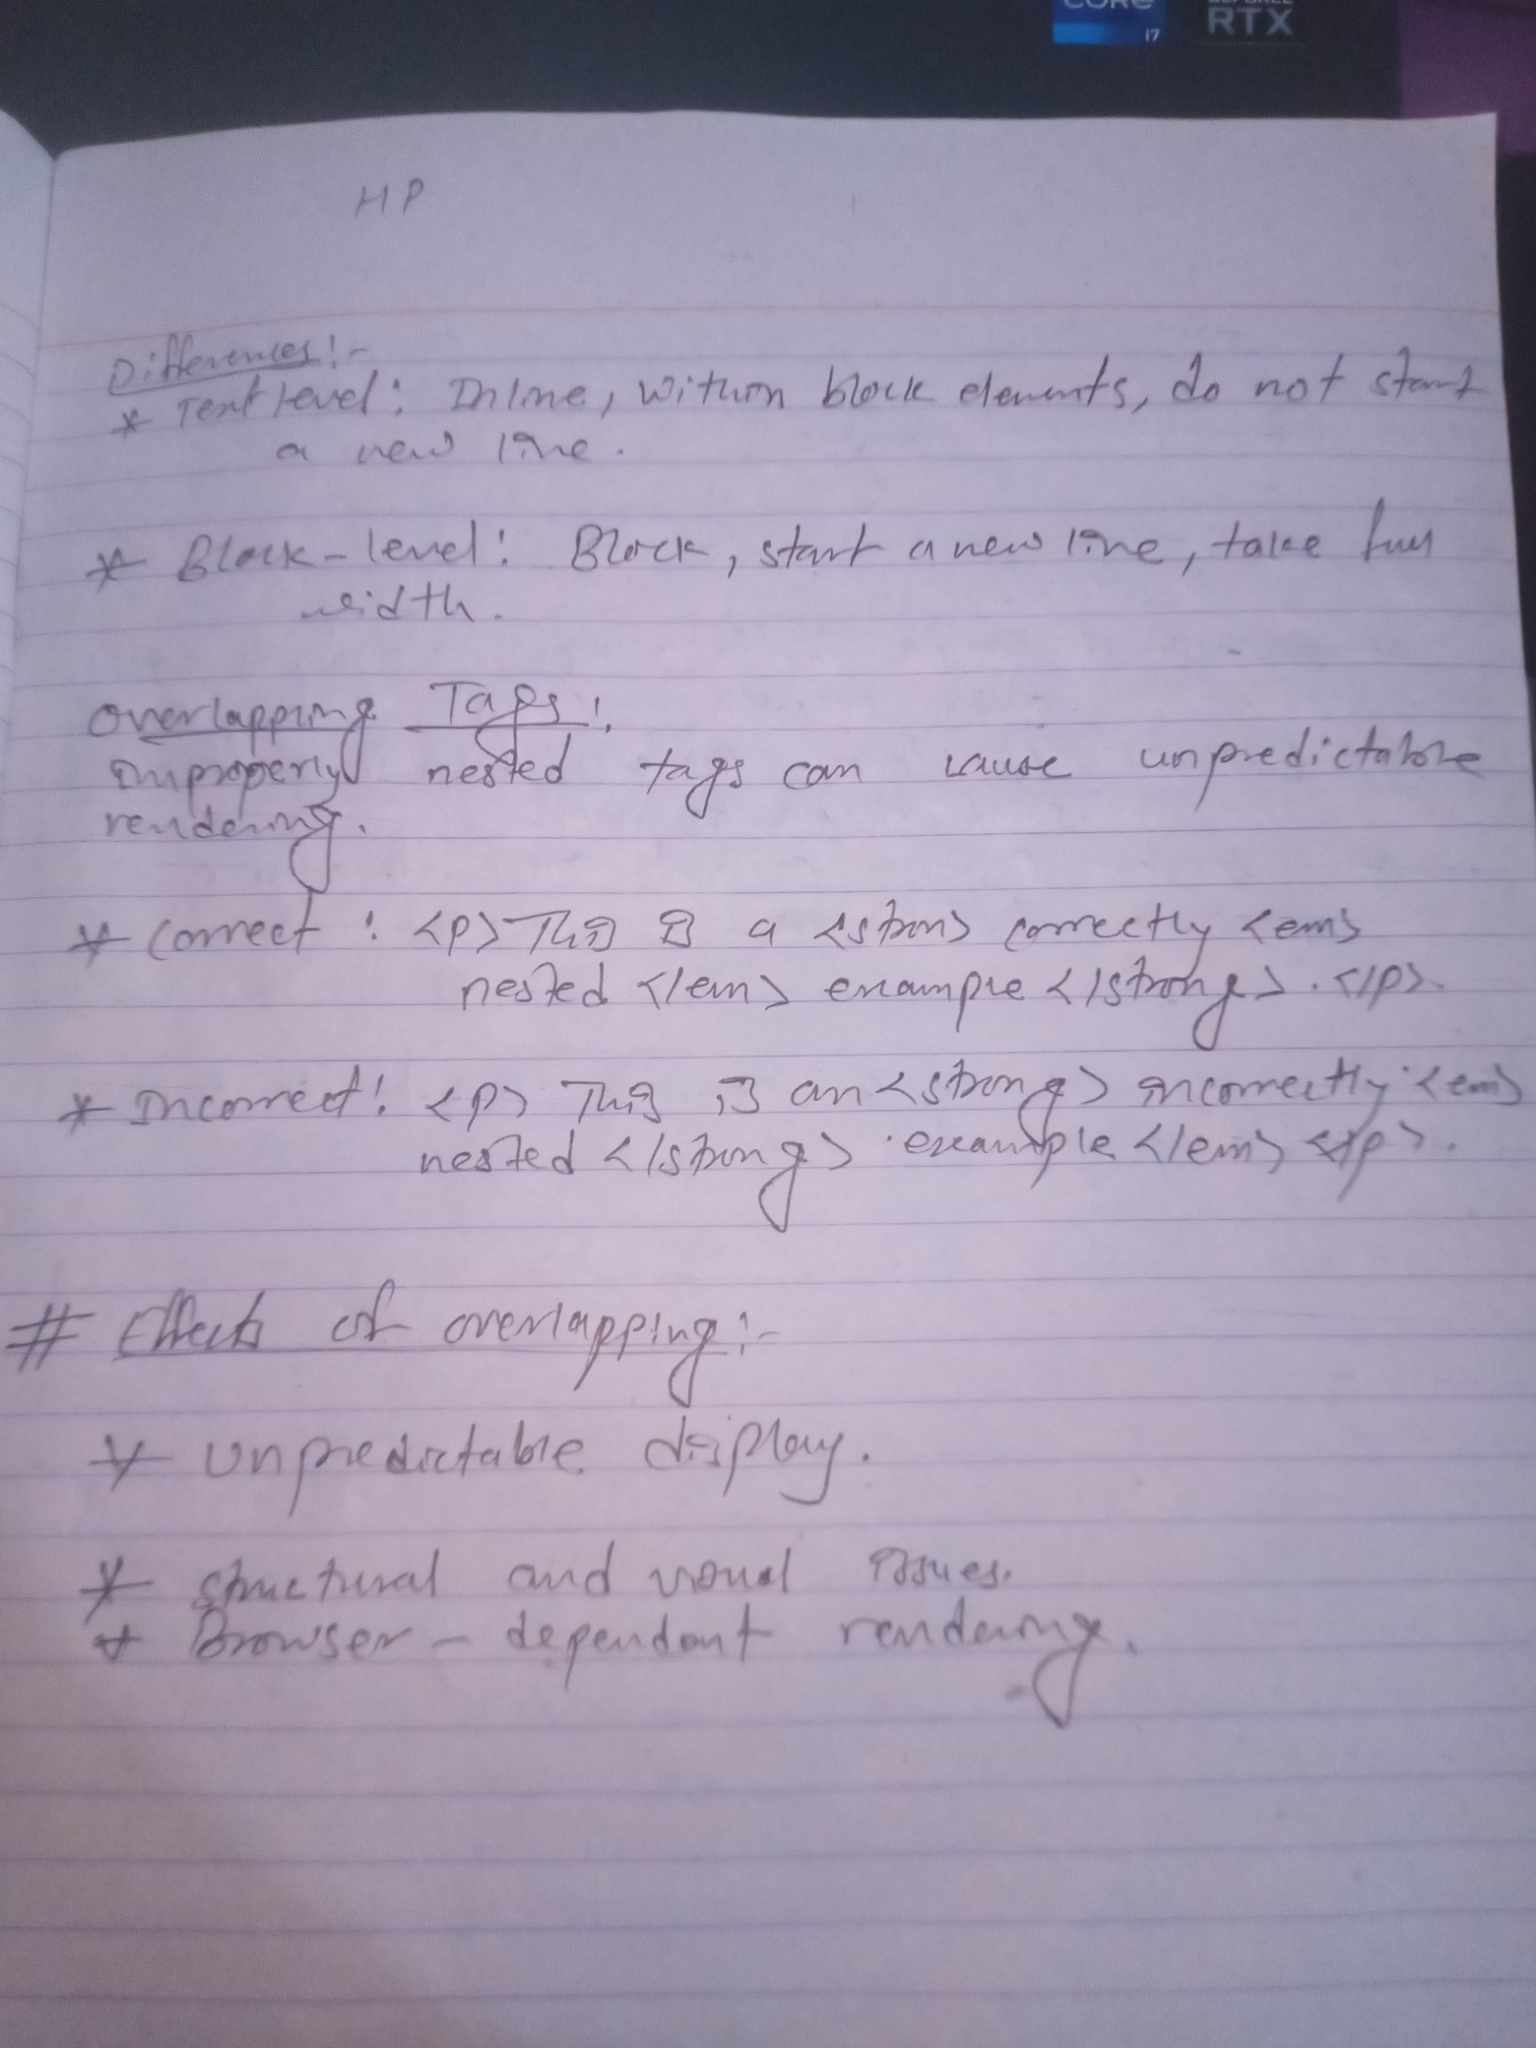 CORE
i7
GEFORCE
RTX
HP
Differences:-
* Text level: Inline, within block elements, do not start
a new line.
* Block-level: Block, start a new line, take full
width.
Overlapping Tags:
Improperly nested tags can cause unpredictable
rendering.
* Correct : <p> This is a <stron> correctly <em>
nested </em> example </strong>.</p>.
* Incorrect: <p> This is an <strong> incorrectly <em>
nested </strong> example </em> </p>.
# Effects of overlapping:-
* Unpredictable display.
* structural and visual issues.
* Browser-dependant rendering.